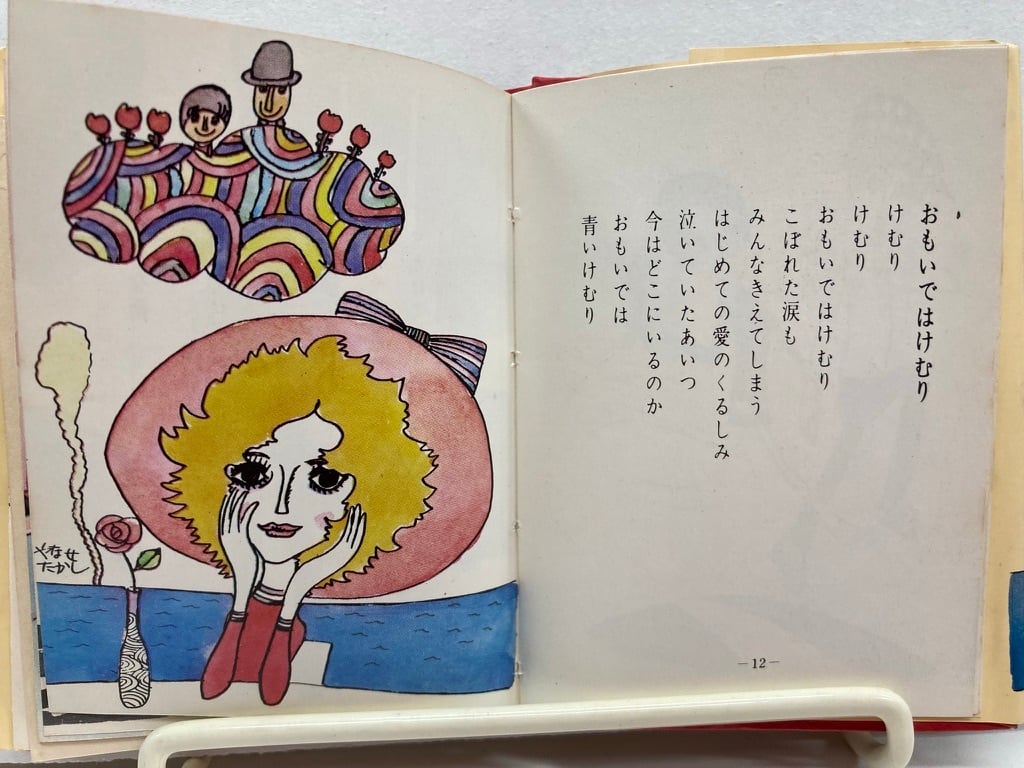 おもいではけむり
けむり
けむり
おもいではけむり
こぼれた涙も
みんなきえてしまう
はじめての愛のくるしみ
泣いていたあいつ
今はどこにいるのか
おもいでは
青いけむり
—12—
やなせ
たかし